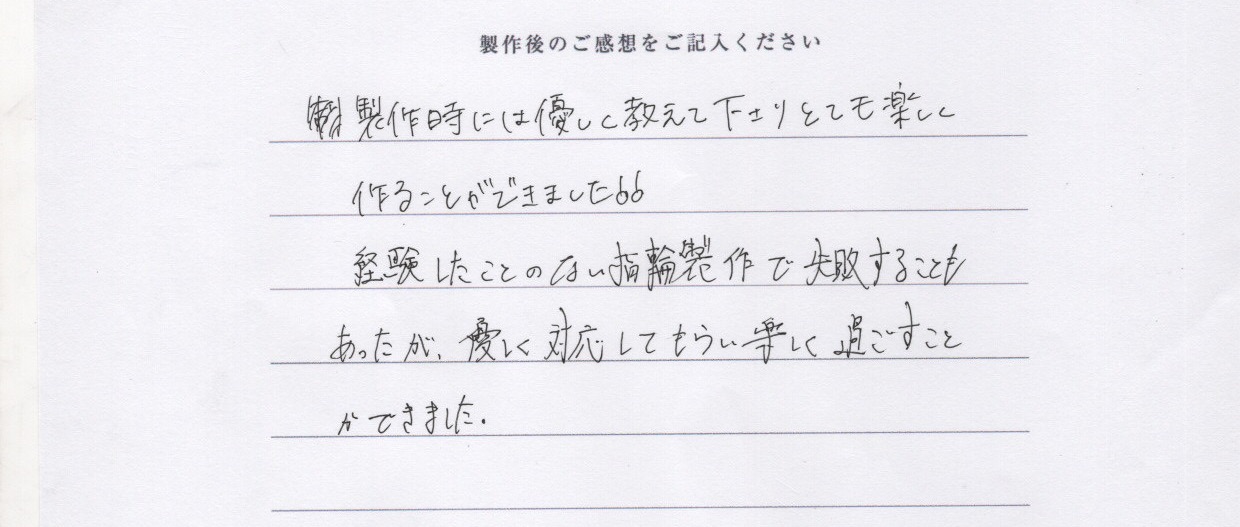 製作後のご感想をご記入ください
製作時には優しく教えて下さりとても楽しく
作ることができました
経験したことのない指輪製作で失敗することも
あったが、優しく対応してもらい楽しく過ごすこと
ができました.